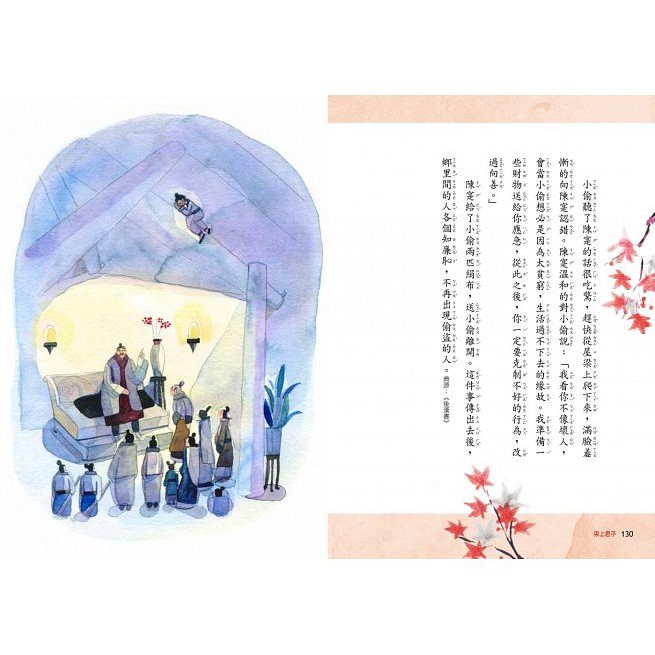 小偷聽了陳寔的話很吃驚，趕快從屋梁上爬下來，滿臉羞
慚的向陳寔認錯。陳寔溫和的對小偷說：「我看你不像壞人，
會當小偷想必是因為太貧窮，生活過不下去的緣故。我準備一
些財物送給你應急，從此之後，你一定要克制不好的行為，改
過向善。」
陳寔給了小偷兩匹絹布，送小偷離開。這件事傳出去後，
鄉里間的人各個知廉恥，不再出現偷盜的人。典源：《後漢書》
梁上君子 130